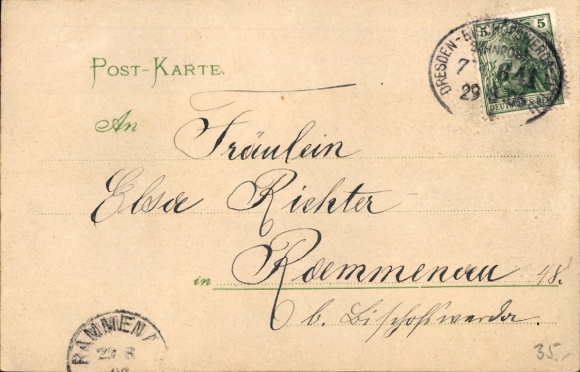 5 5
DRESDEN-
BAHNPOST
7
29
DEUTSCHES REICH
POST-KARTE.
An Fräulein
Elsa Richter
in Rammenau 48.
b. Bischofswerda.
RAMMENA
29 8
35.-